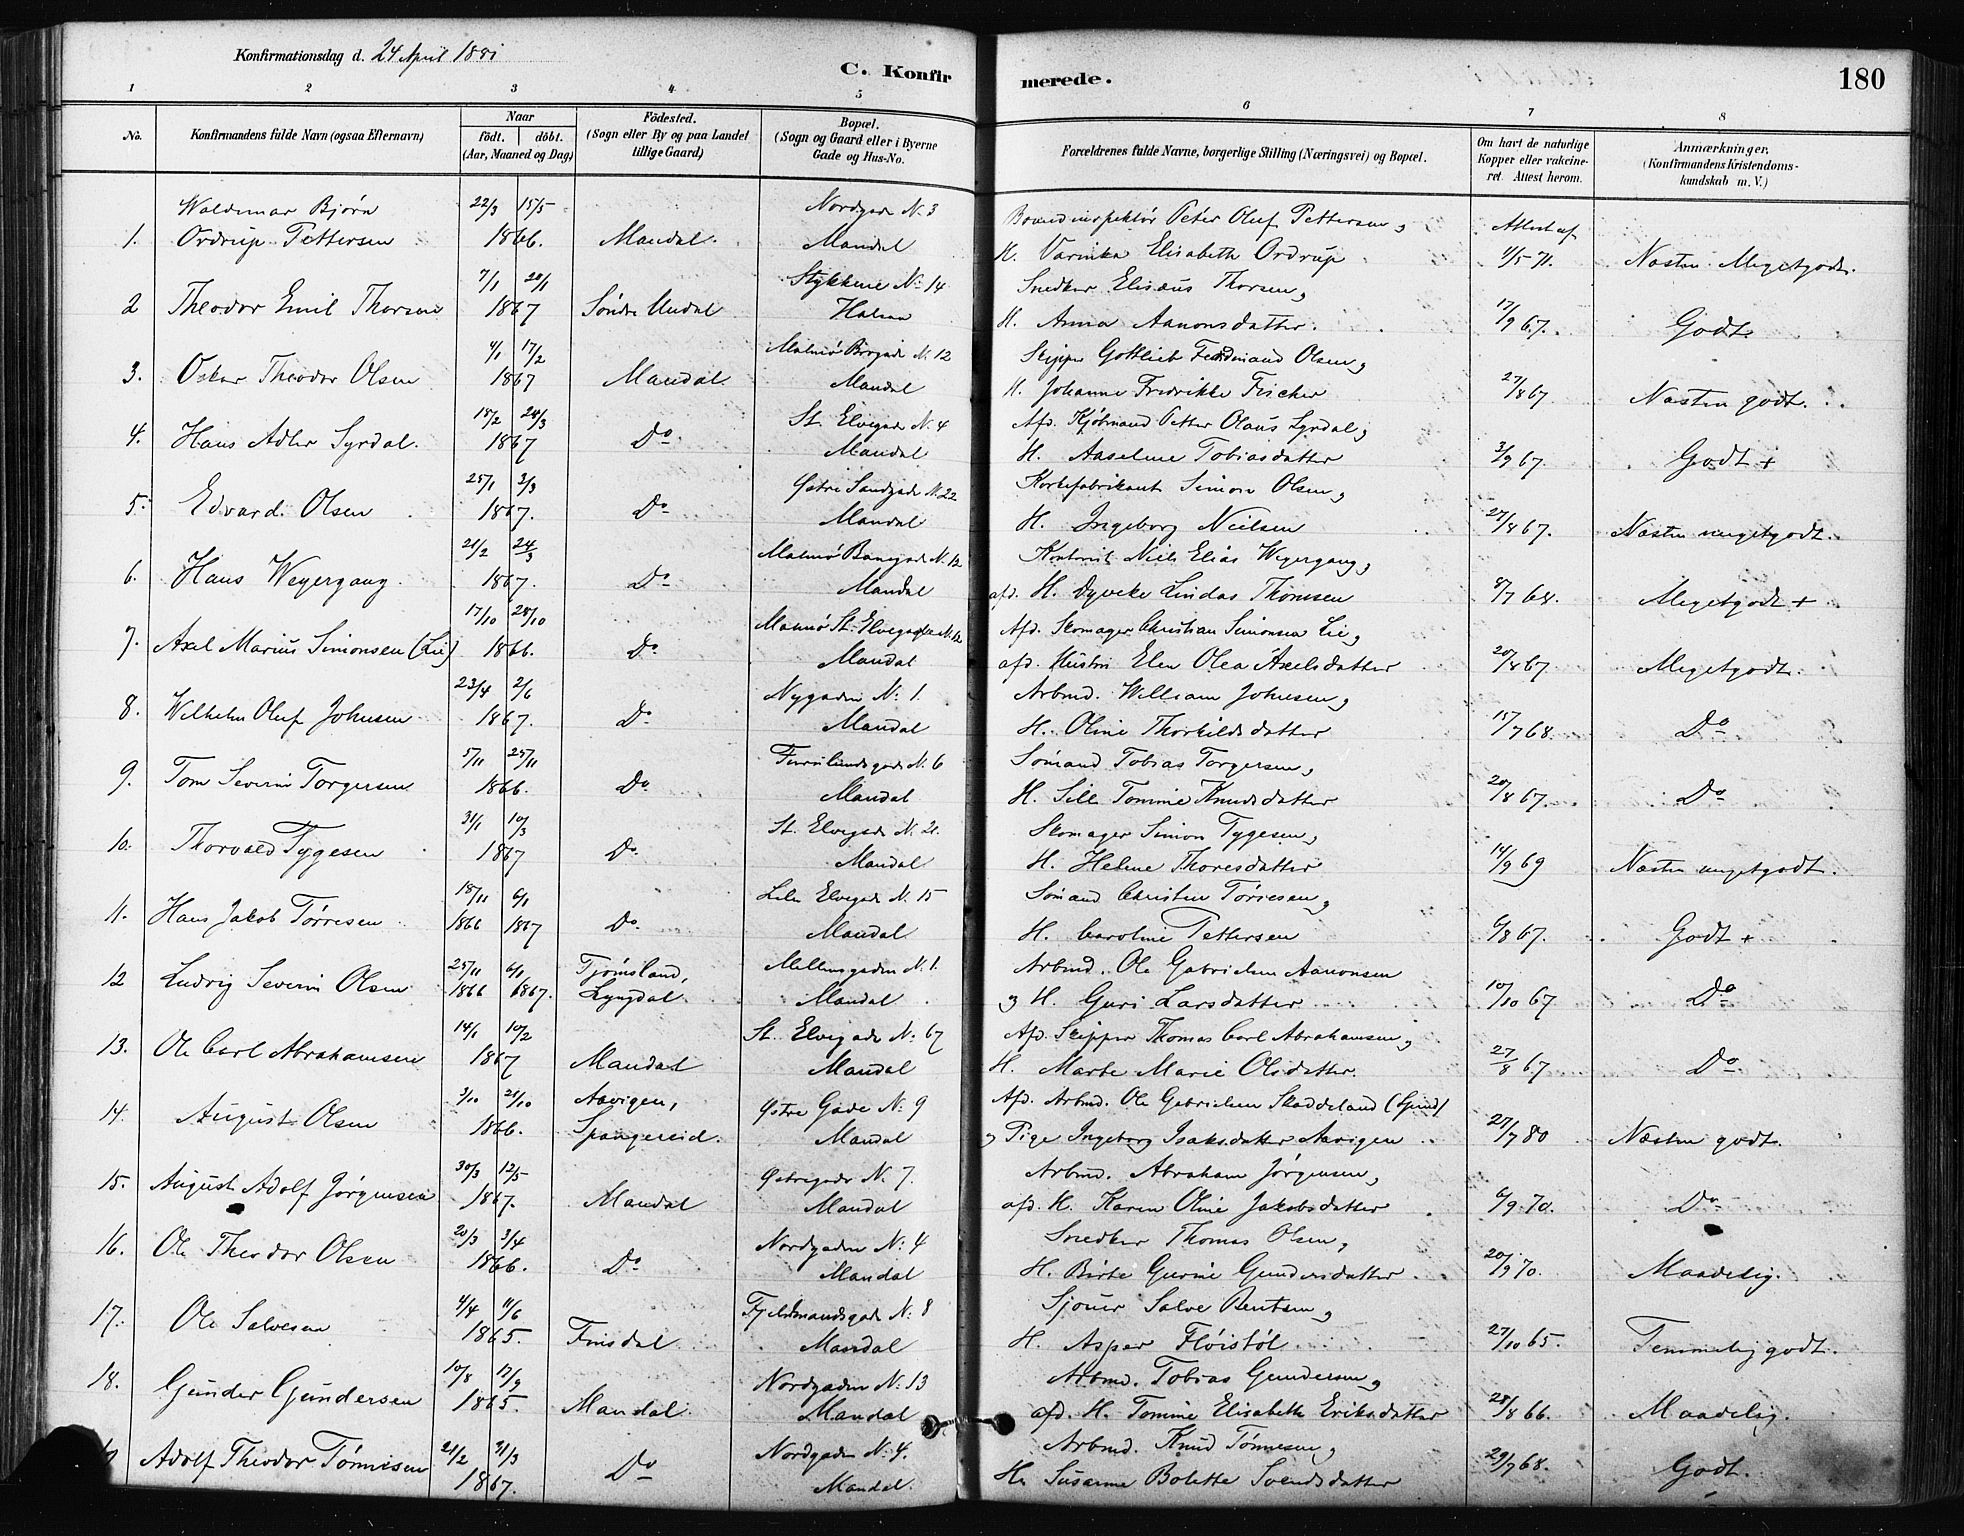 Konfirmationsdag d. 24 April 1881
C. Konfirmerede.
180
1 2 3 4 5 6 7 8
No.
Konfirmandens fulde Navn (ogsaa Efternavn)
Naar
födt. döbt.
(Aar, Maaned og Dag)
Födested.
(Sogn eller By og paa Landet
tillige Gaard)
Bopæl.
(Sogn og Gaard eller i Byerne
Gade og Hus-No.
Forældrenes fulde Navne, borgerlige Stilling (Næringsvei) og Bopæl.
Om havt de naturlige
Kopper eller vakcine-
ret. Attest herom.
Anmærkninger,
(Konfirmandens Kristendoms-
kundskab m. V.)
Waldemar Bjørn 22/3 15/5 Nordgade N. 3 Peter Oluf Pettersen, Attest af
1. Ordrup Pettersen 1866. Mandal. Mandal H. Varinka Elisabeth Ordrup 4/5 71. Næsten Megetgodt.
7/1 20/1 N: 14 Snedker Elisæus Thorsen,
2 Theodor Emil Thorsen 1867 Søndre Undal Halsaa H. Anna Aanonsdatter. 17/9 67. Godt.
4/1 17/2 Malmø N. 12 Skipper Gottlieb Ferdinand Olsen,
3. Oskar Theodor Olsen 1867 Mandal. Mandal H. Johanne Fredrikke Fischer 27/8 67 Næsten godt.
18/2 24/3 St. Elvegade N. 4 Afd. Kjøbmand Petter Olaus Syrdal,
4. Hans Adler Syrdal. 1867 Do. Mandal H. Aaselene Tobiasdatter 3/9 67. Godt +
25/1 3/3 Østre Sandgade N. 22 Korkefabrikant Simon Olsen,
5. Edvard Olsen 1867. Do Mandal H. Ingeborg Nielsen 27/8 67. Næsten megetgodt.
21/2 24/3 Malmø N. 12 Niels Elias Weyergang,
6. Hans Weyergang. 1867. Do Mandal afd. H. Dyveke Lindas Thomsen 8/7 68. Megetgodt +
17/10 28/10 Malmø St. Elvegade N. 12 Afd. Skomager Christian Simonsen Lie,
7. Axel Marius Simonsen (Lie) 1866. Do Mandal afd. Hustru Elen Olea Axelsdatter 20/8 67. Megetgodt.
23/4 2/6 Nygaden N: 1. Arbmd. William Johnsen,
8. Wilhelm Oluf Johnsen 1867. Do Mandal H. Oline Thorkildsdatter 15/7 68. Do
5/11 25/11 N. 6 Sømand Tobias Torgersen,
9. Tom Severin Torgersen 1866. Do Mandal H. Sille Tomine Knudsdatter 20/8 67. Do
31/1 10/3 St. Elvegade N. 21. Skomager Simon Tygesen,
10. Thorvald Tygesen 1867 Do. Mandal H. Helene Thoresdatter 14/9 69 Næsten megetgodt.
18/11 6/1 Lille Elvegade N. 15 Sømand Christen Tørresen,
11. Hans Jakob Tørresen 1866 1867 Do. Mandal H. Caroline Pettersen 6/8 67. Godt +
25/11 6/1 Tjømsland, Mellemgaden N. 1. Arbmd. Ole Gabrielsen Aanonsen
12 Ludvig Severin Olsen 1866 1867. Lyngdal. Mandal og H. Guri Larsdatter 10/10 67 Do
14/1 10/2 St. Elvegade N: 67 Afd. Skipper Thomas Carl Abrahamsen,
13. Ole Carl Abrahamsen 1867 Mandal Mandal H. Marte Marie Olsdatter. 27/8 67 Do.
3/10 21/10 Aavigen, Østre Gade N: 9 Afd. Arbmd. Ole Gabrielsen Skaddeland
14. August Olsen 1866. Spangereid. Mandal og Pige Ingeborg Isaksdatter Aavigen 27/7 80 Næsten godt.
30/3 12/5 Østregade N. 7. Arbmd. Abraham Jørgensen,
15. August Adolf Jørgensen 1867. Mandal Mandal afd. H. Karen Oline Jakobsdatter 6/9 70. Do
20/3 3/4 Nordgaden N: 4 Snedker Thomas Olsen,
16. Ole Theodor Olsen 1866. Do. Mandal H. Birte Gurine Gundersdatter 20/9 70. Maadelig.
4/4 11/6 Fjeldmandsgade N: 8 Sjouer Salve Rentsen,
17. Ole Salvesen 1865. Finsdal Mandal H. Asper Fløistøl 27/10 65. Temmelig godt.
10/8 17/9 Nordgaden N: 13 Arbmd. Tobias Gundersen,
18. Gunder Gundersen 1865. Mandal Mandal afd. H. Tomine Elisabeth Eriksdatter 28/8 66. Maadelig.
21/2 31/3 Nordgaden N: 4. Arbmd. Knud Tønnesen,
Adolf Theodor Tønnesen 1867. Do Mandal. H. Susanne Bolette Svendsdatter 29/7 68. Godt.